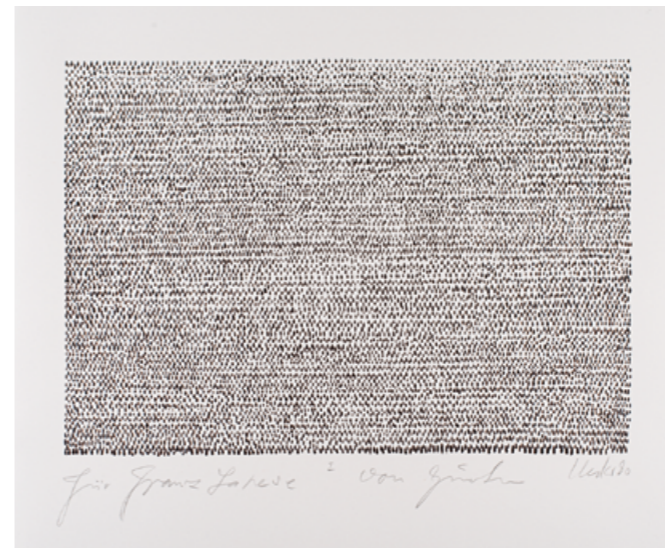 Für Franz Larese von Günther Uecker 80